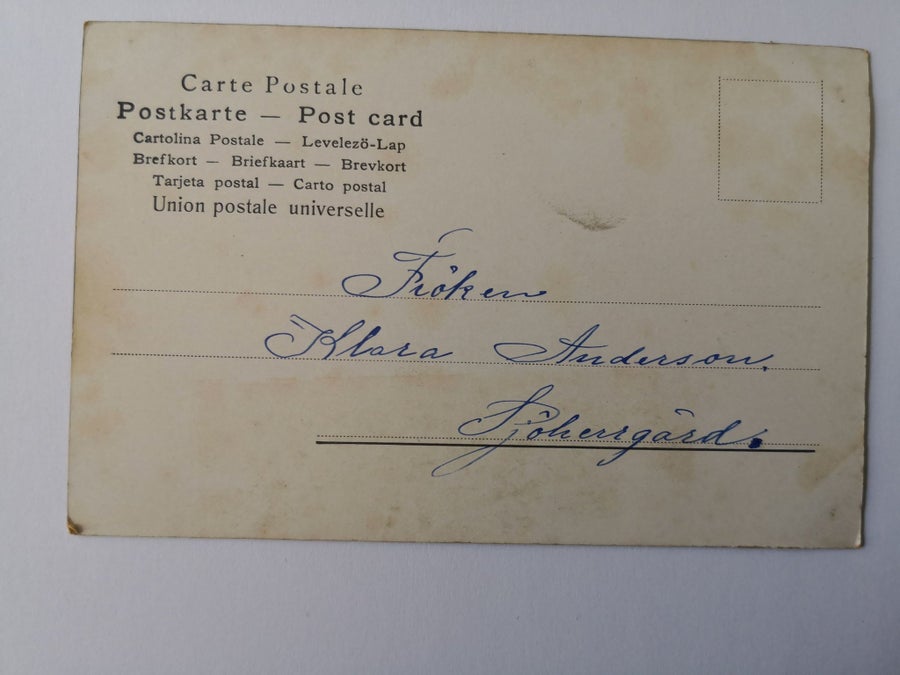 Carte Postale
Postkarte — Post card
Cartolina Postale — Levelezö-Lap
Brefkort — Briefkaart — Brevkort
Tarjeta postal — Carto postal
Union postale universelle
Fröken
Klara Anderson.
Sjöherrgård.